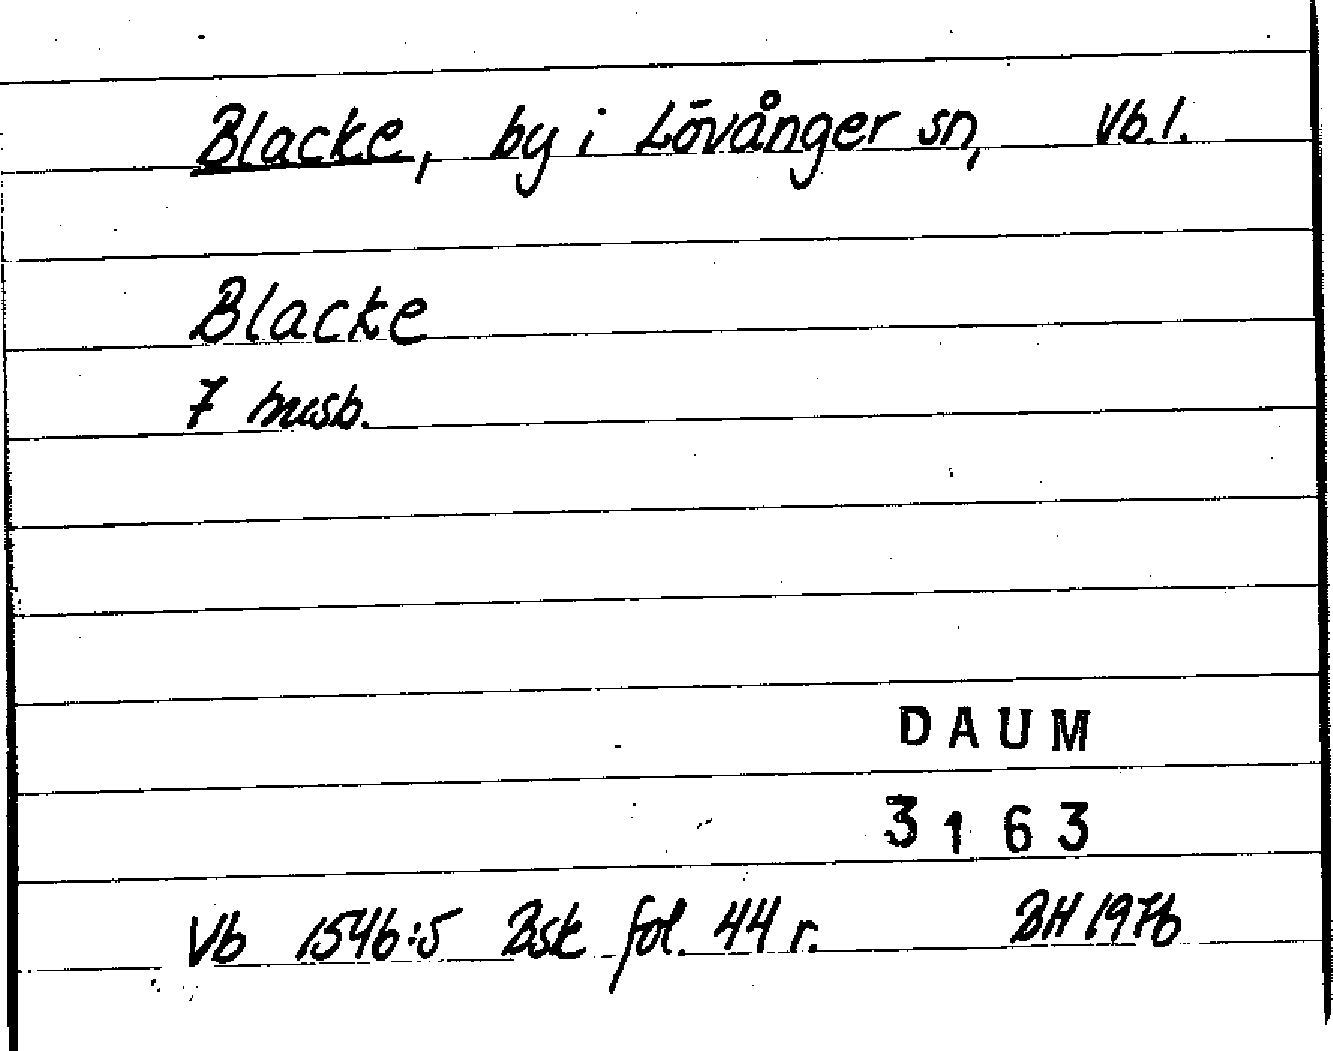 Blacke, by i Lövånger sn, Vb.l.
Blacke
7 husb.
DAUM
3163
Vb 1546:5 Bsk fol. 44 r. BH 1976